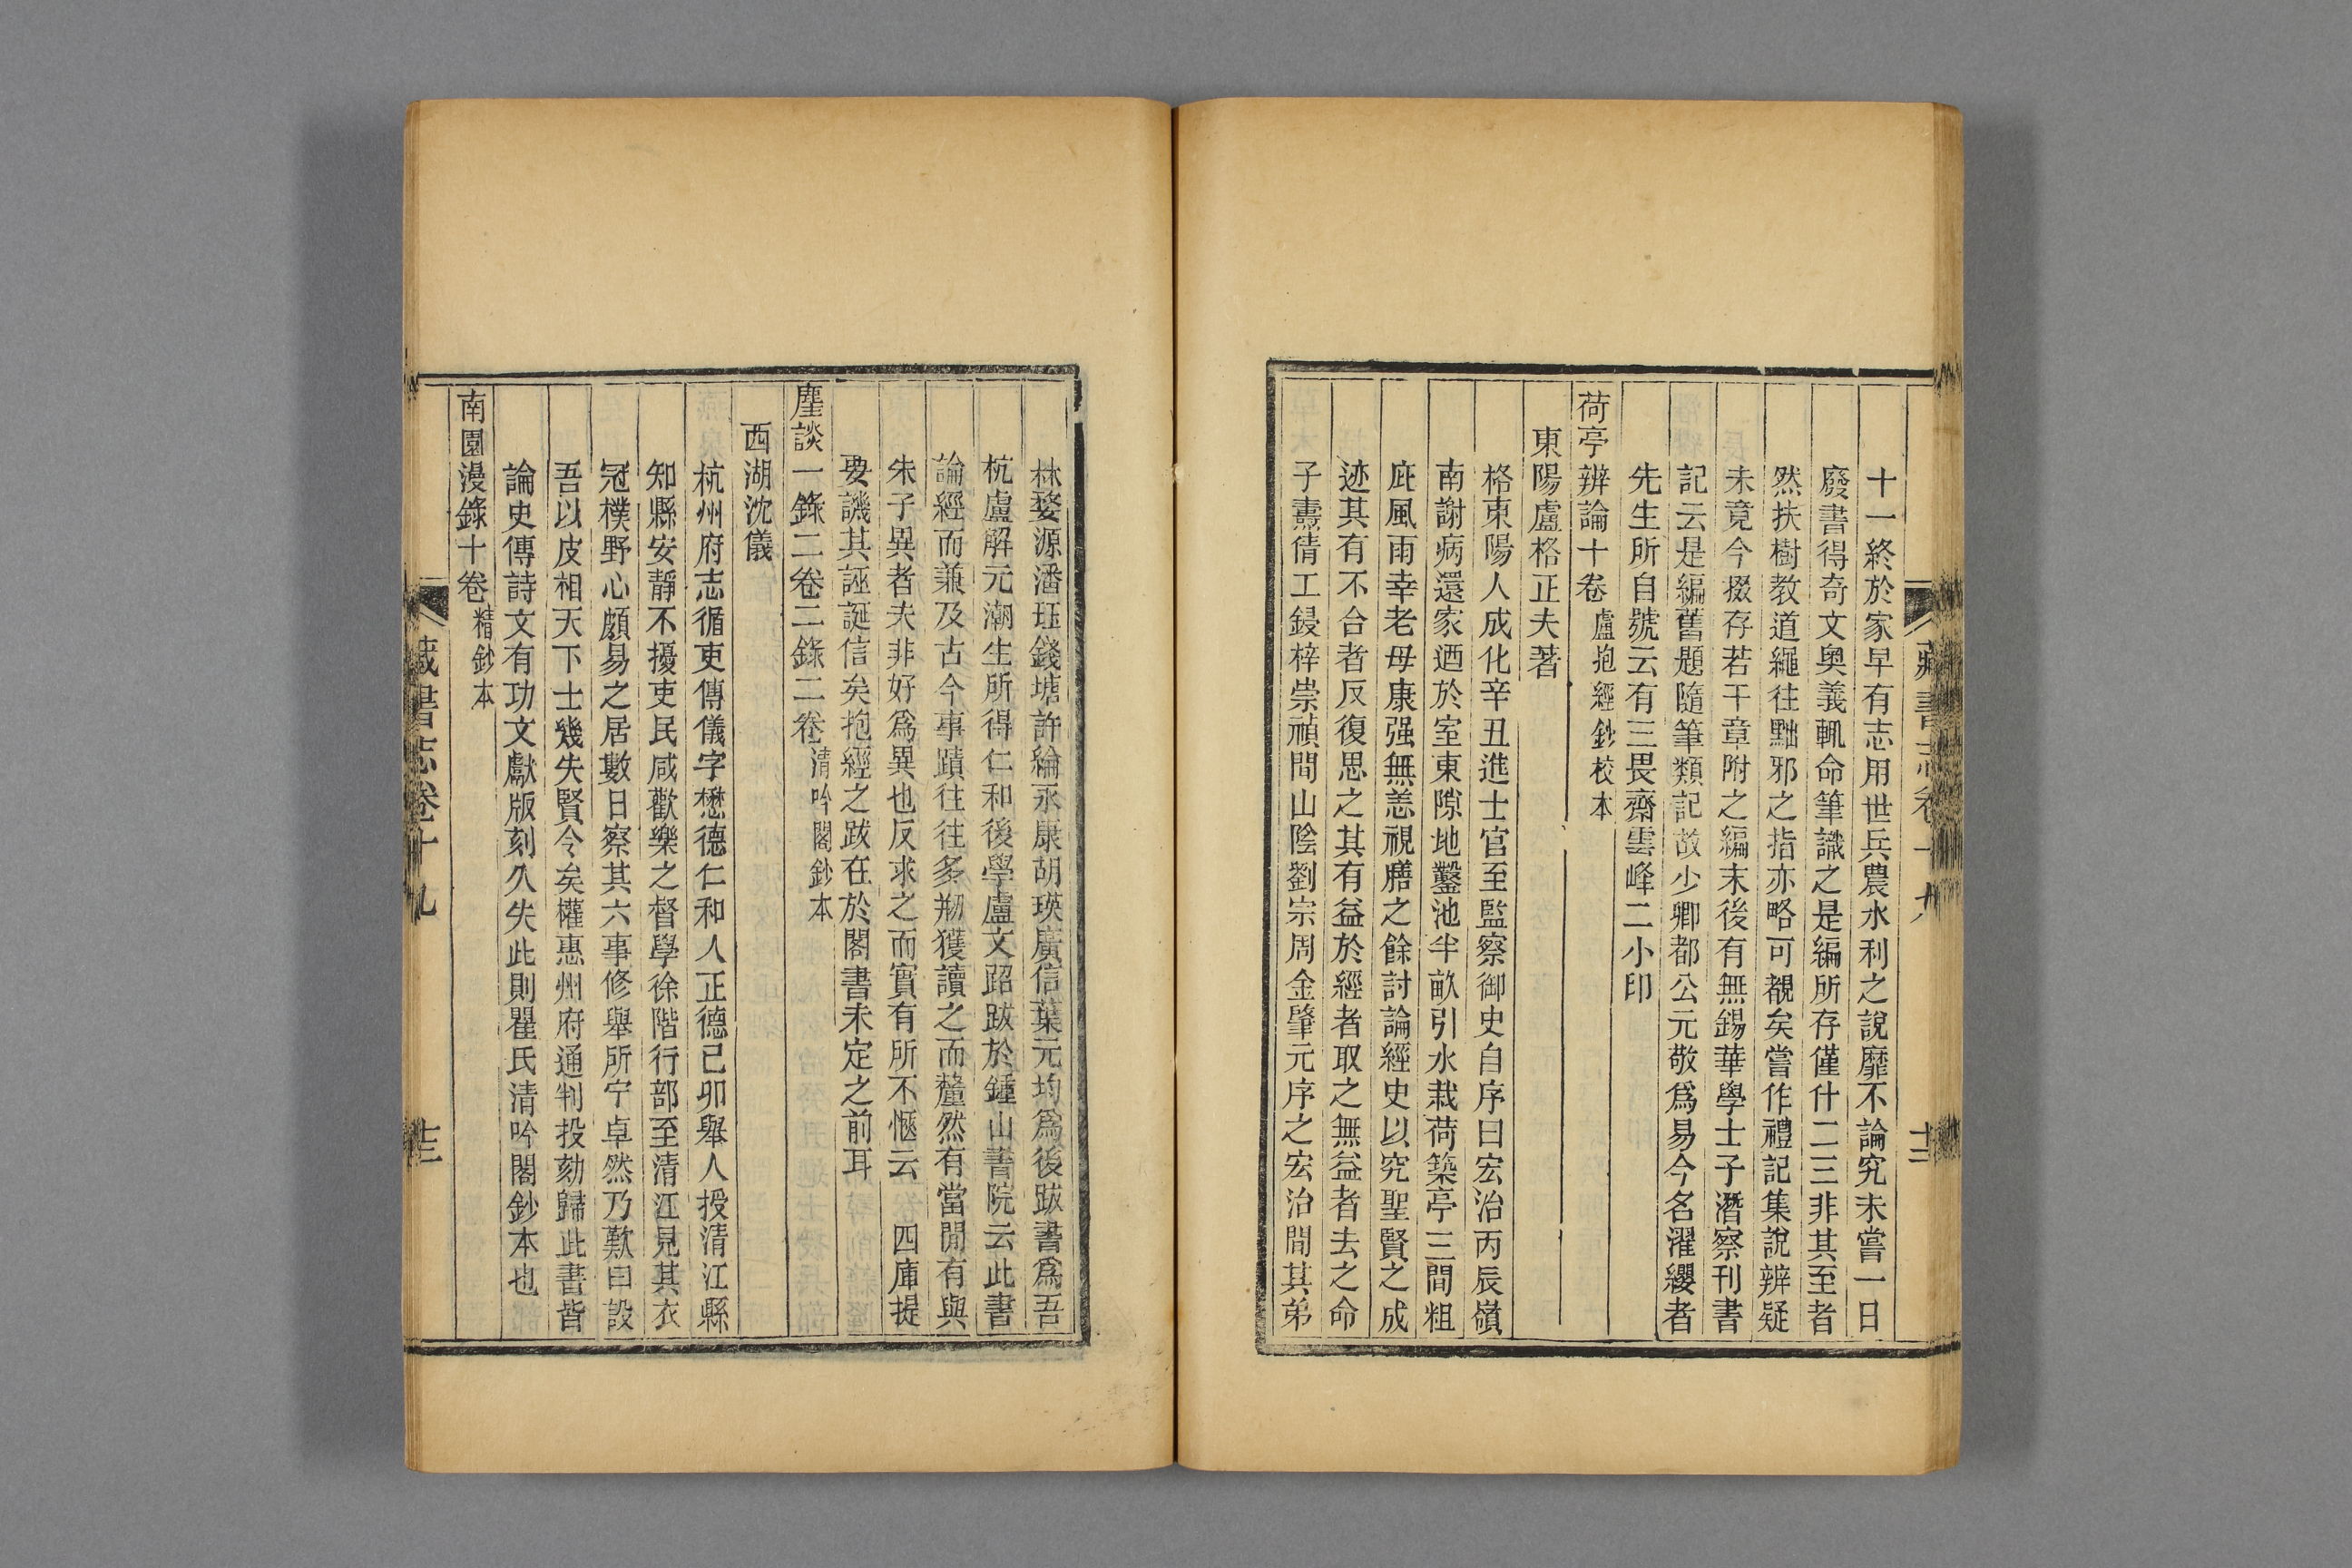 十一終於家早有志用世兵農水利之說靡不論究未嘗一日
廢書得奇文奧義輒命筆識之是編所存僅什二三非其至者
然扶樹教道繩往黜邪之指亦略可覩矣嘗作禮記集說辨疑
未竟今掇存若干章附之編末後有無錫華學士子潛察刊書
記云是編舊題隨筆類記故少卿都公元敬爲易今名濯纓者
先生所自號云有三畏齋雲峰二小印
荷亭辨論十卷盧抱經鈔校本
東陽盧格正夫著
格東陽人成化辛丑進士官至監察御史自序曰宏治丙辰嶺
南謝病還家迺於室東隙地鑿池半畝引水栽荷築亭三間粗
庇風雨幸老母康强無恙視膳之餘討論經史以究聖賢之成
迹其有不合者反復思之其有益於經者取之無益者去之命
子燾倩工鋟梓崇禎間山陰劉宗周金肇元序之宏治間其弟
藏書志卷十九
十二
林婺源潘珏錢塘許綸永康胡瑛廣信葉元均爲後跋書爲吾
杭盧解元潮生所得仁和後學盧文弨跋於鍾山書院云此書
論經而兼及古今事蹟往往多剏獲讀之而釐然有當閒有與
朱子異者夫非好爲異也反求之而實有所不愜云 四庫提
要譏其誣誕信矣抱經之跋在於閣書未定之前耳
麈談一錄二卷二錄二卷清吟閣鈔本
西湖沈儀
杭州府志循吏傳儀字懋德仁和人正德已卯舉人授清江縣
知縣安靜不擾吏民咸歡樂之督學徐階行部至清江見其衣
冠樸野心頗易之居數日察其六事修舉所守卓然乃歎曰設
吾以皮相天下士幾失賢令矣權惠州府通判投劾歸此書皆
論史傳詩文有功文獻版刻久失此則瞿氏清吟閣鈔本也
南園漫錄十卷精鈔本
藏書志卷十九
十三